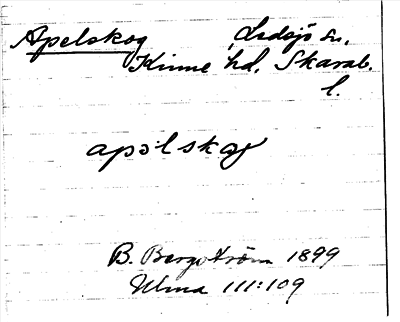 Apelskog, Ledsjö sn,
Kinne hd. Skarab.
l.
apəlskog
B. Bergström 1899
Ulma 111:109